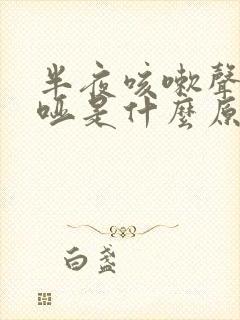 半夜咳嗽聲
啞是什麼原
白盏